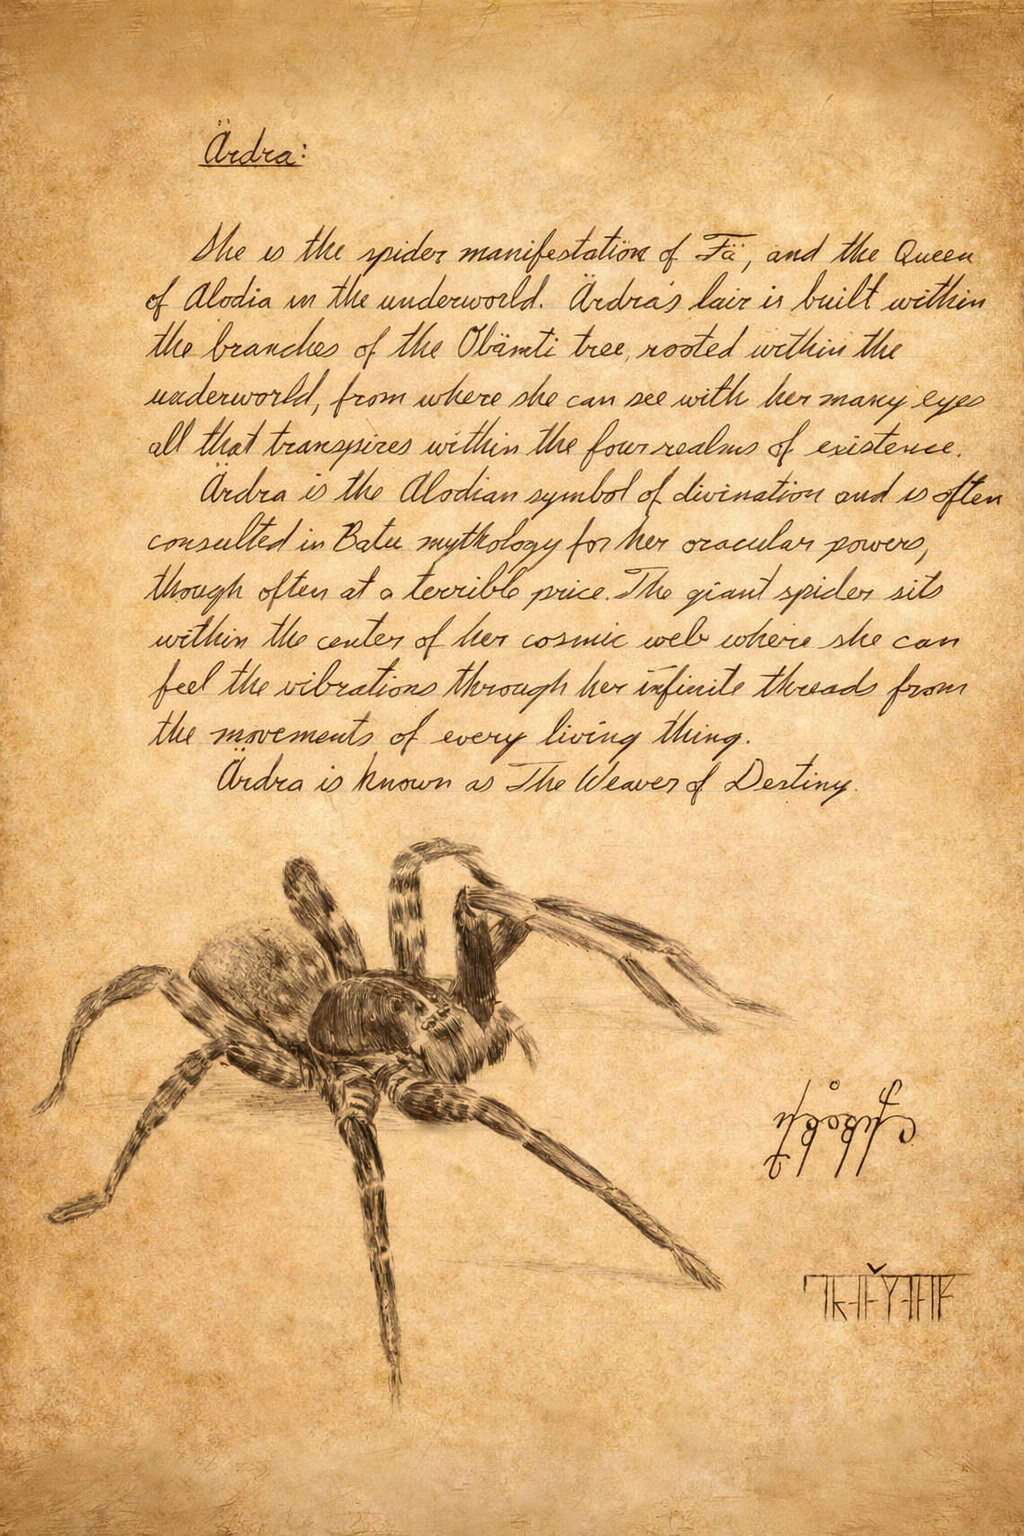 Ärdra:
She is the spider manifestation of Fä, and the Queen
of Alodia in the underworld. Ärdra's lair is built within
the branches of the Obämti tree, rooted within the
underworld, from where she can see with her many eyes
all that transpires within the four realms of existence.
Ärdra is the Alodian symbol of divination and is often
consulted in Batu mythology for her oracular powers,
though often at a terrible price. The giant spider sits
within the center of her cosmic web where she can
feel the vibrations through her infinite threads from
the movements of every living thing.
Ärdra is known as The Weaver of Destiny.